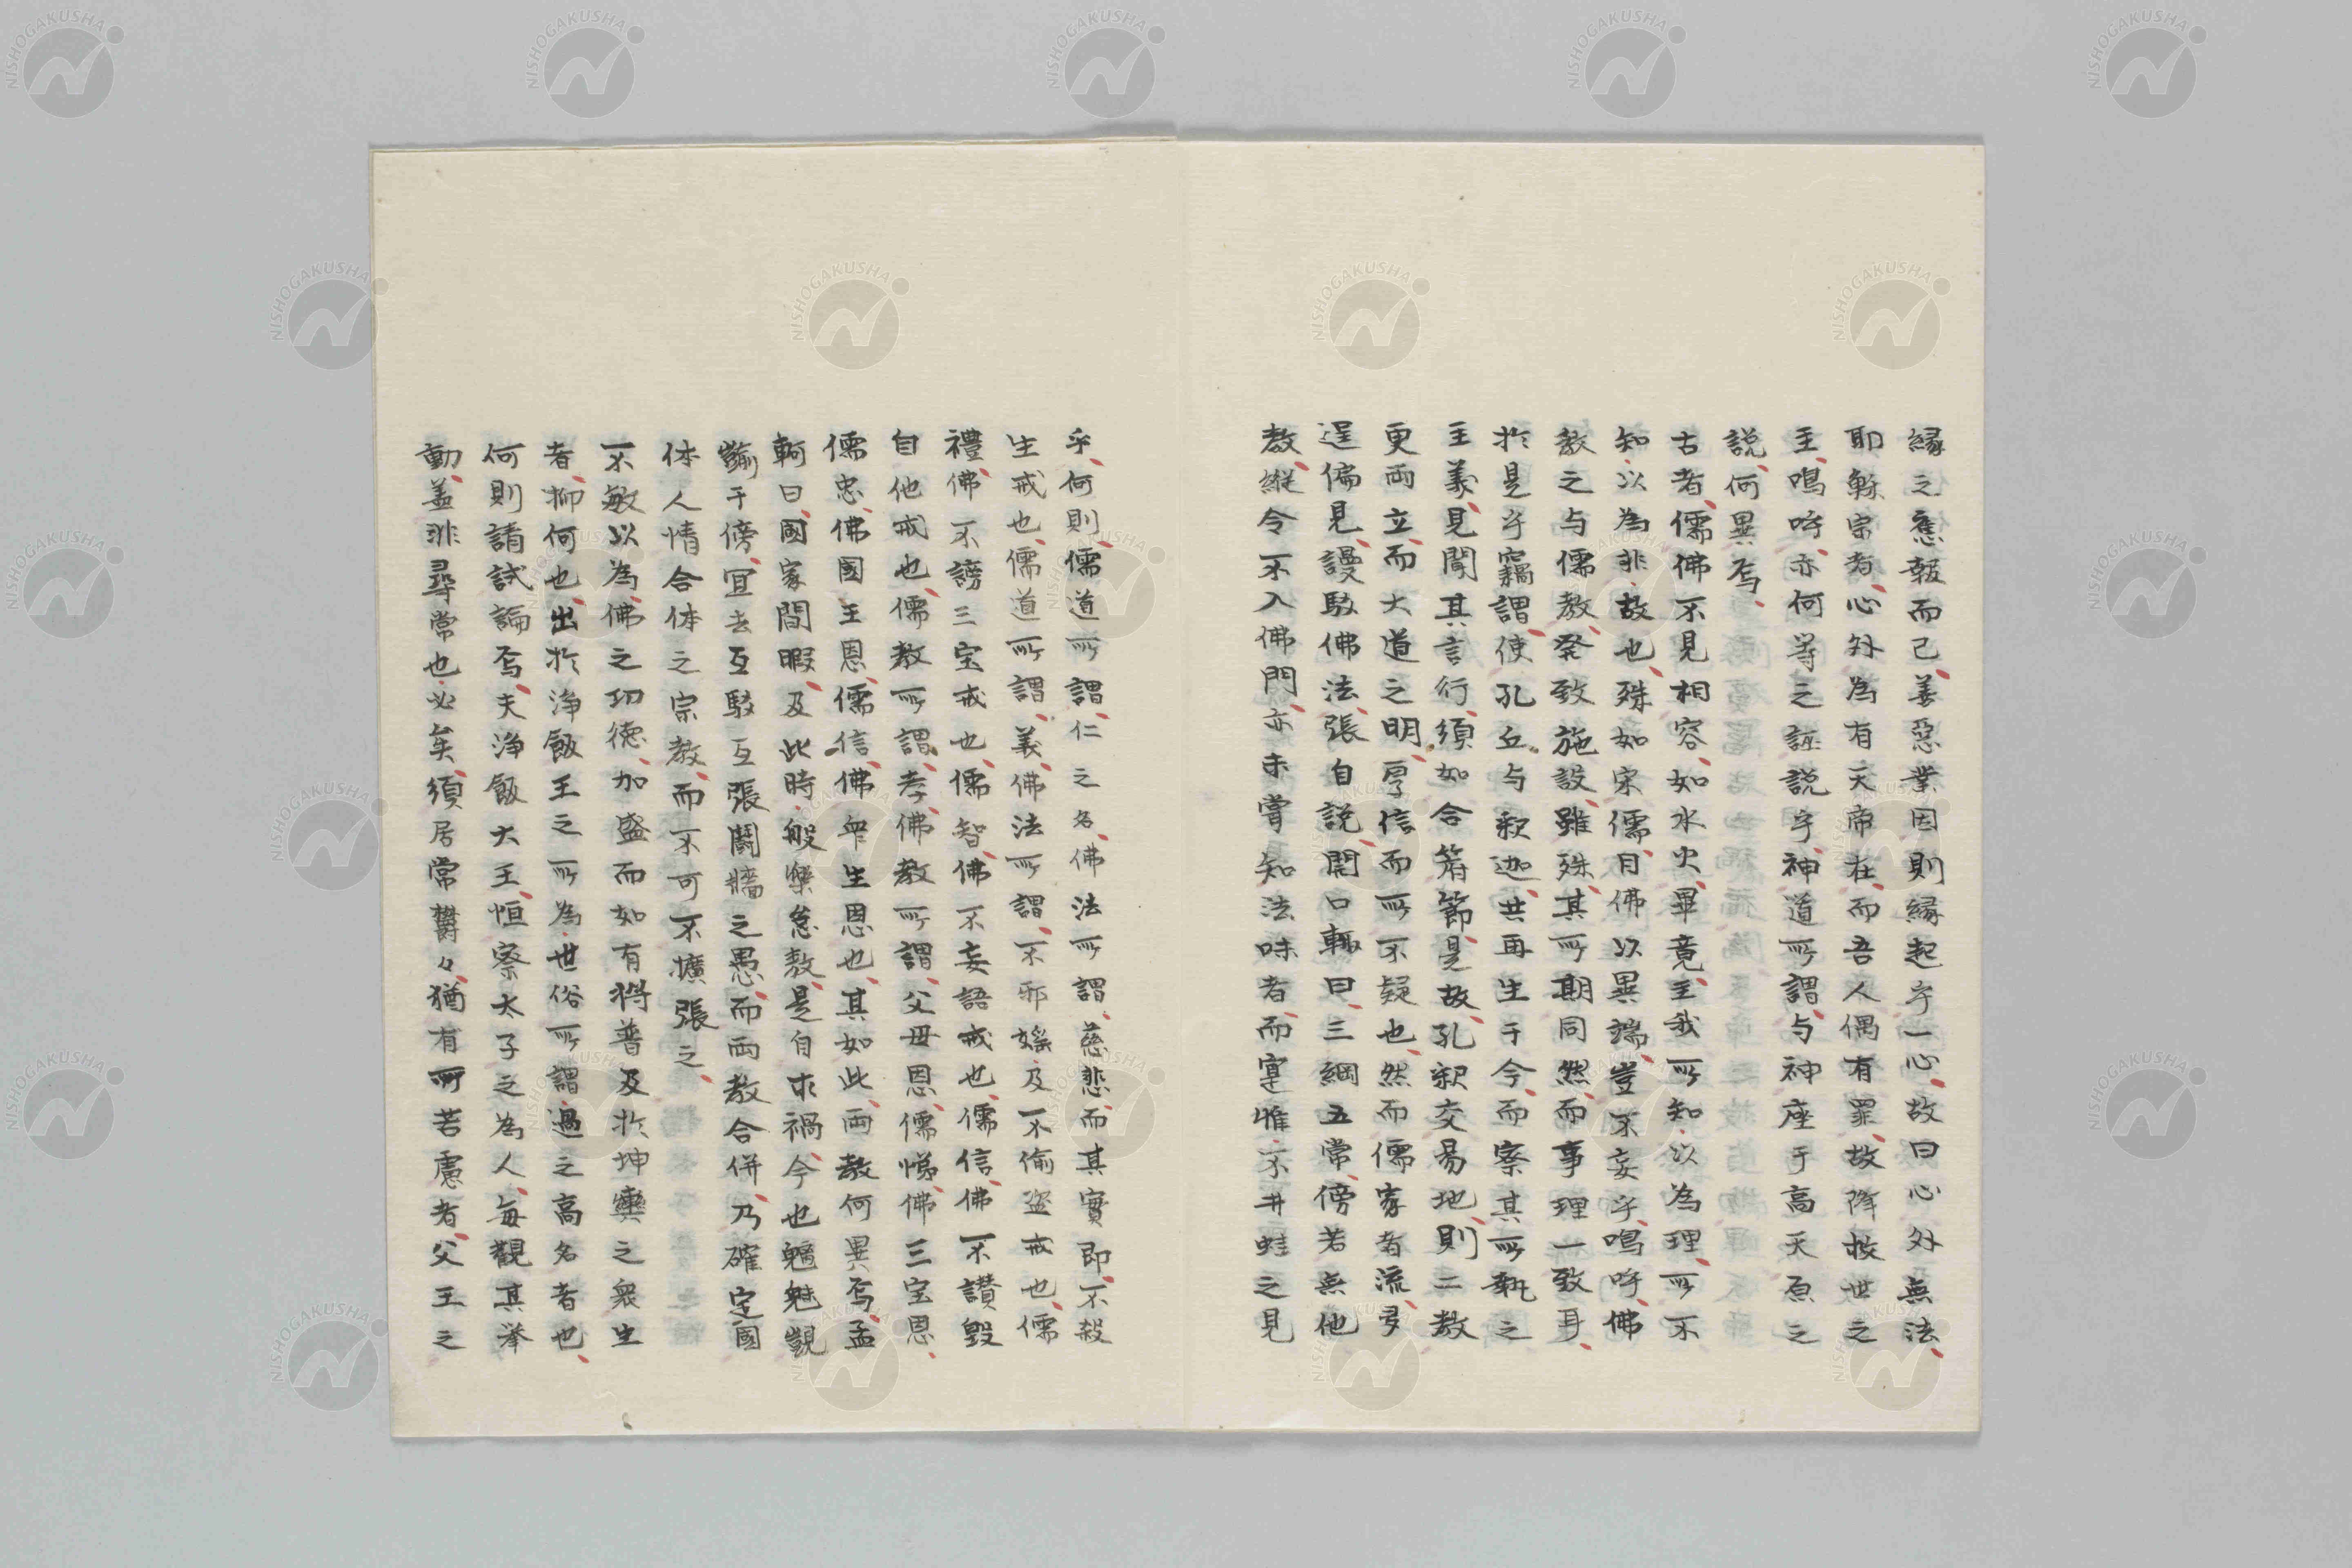 縁之應報而已善惡業因則縁起乎一心故曰心外無法
耶穌宗者心外為有天帝在而吾人偶有罪故降救世之
主嗚呼亦何等之誣説乎神道所謂与神座于高天原之
説何異焉
古者儒佛不見相容如水火畢竟主我所知以為理所不
知以為非故也殊如宋儒目佛以異端豈不妄乎嗚呼佛
教之与儒教発致施設雖殊其所期同然而事理一致耳
於是乎竊謂使孔丘与釈迦共再生于今而察其所執之
主義見聞其言行須如合符節是故孔釈交易地則二教
更両立而大道之明厚信而所不疑也然而儒家者流
逞偏見謾駁佛法張自説開口輒曰三綱五常傍若無他
教縦令不入佛門亦未嘗知法味者而寔惟不井蛙之見
乎何則儒道所謂仁之名佛法所謂慈悲而其實即不殺
生戒也儒道所謂義佛法所謂不邪婬及不偷盗戒也儒
禮佛不謗三宝戒也儒智佛不妄語戒也儒信佛不讃毀
自他戒也儒教所謂孝佛教所謂父母恩儒悌佛三宝恩
儒忠佛國王恩儒信佛衆生恩也其如此両教何異焉孟
軻曰國家間暇及此時般樂怠敖是自求禍今也魑魅覬
覦于傍宜去互駁互張鬩牆之愚而両教合併乃確定國
体人情合体之宗教而不可不擴張之
不敏以為佛之功徳加盛而如有將普及於坤輿之衆生
者抑何也出於浄飯王之所為世俗所謂過之高名者也
何則請試論焉夫浄飯大王恒察太子之為人毎觀其挙
動蓋非尋常也必矣須居常欝々猶有所若慮者父王之
NISHOGAKUSHA